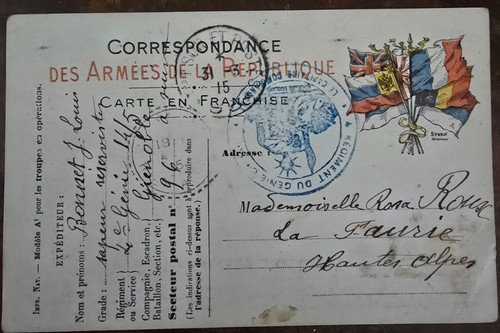 CORRESPONDANCE
DES ARMÉES DE LA RÉPUBLIQUE
CARTE EN FRANCHISE
31 - 3
15
RÉGIMENT DU GÉNIE
STERN
Adresse :
Mademoiselle Rosa Roux
La Faurie
Hautes Alpes
IMP. NAT. — Modèle A¹ pour les troupes en opérations.
EXPÉDITEUR :
Nom et prénoms : Bonnet J. Louis
Grade : sapeur réserviste
Régiment 4e Génie
ou Service)
Grenoble
Compagnie, Escadron,
Bataillon, Section, etc.)
Secteur postal n° 96
(Les indications ci-dessus sont à reproduire dans
l'adresse de la réponse.)